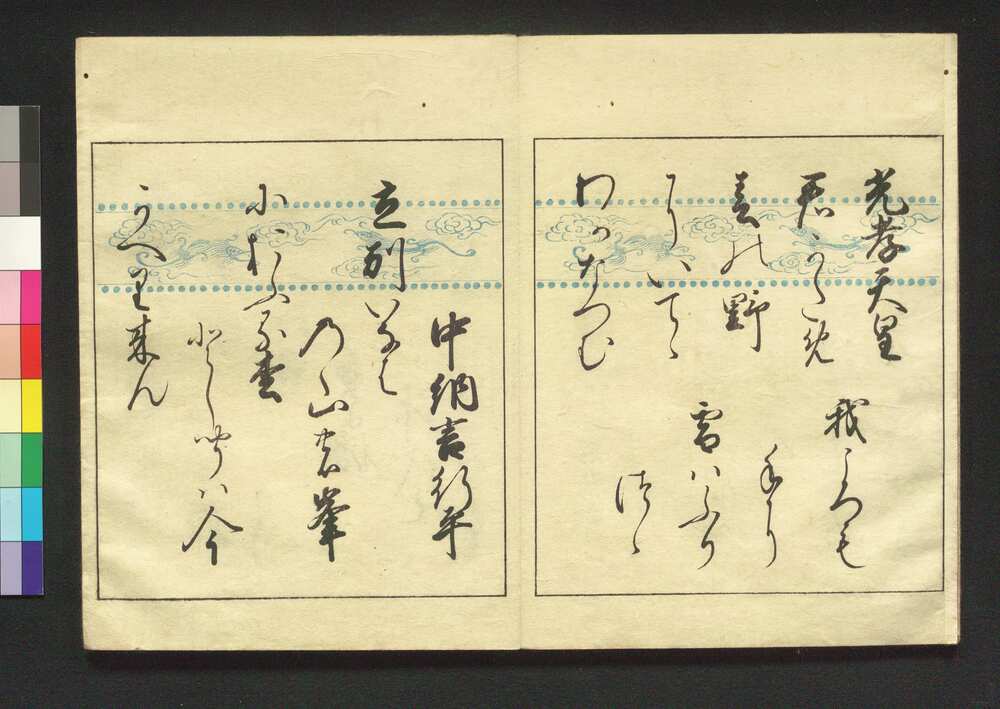 光孝天皇
君かため
春の野
にいてゝ
わかなつむ
我ころも
手に
雪ハふり
つゝ
中納言行平
立別いなは
の山の峯
におふる松
とし聞ハ今
かへり来ん